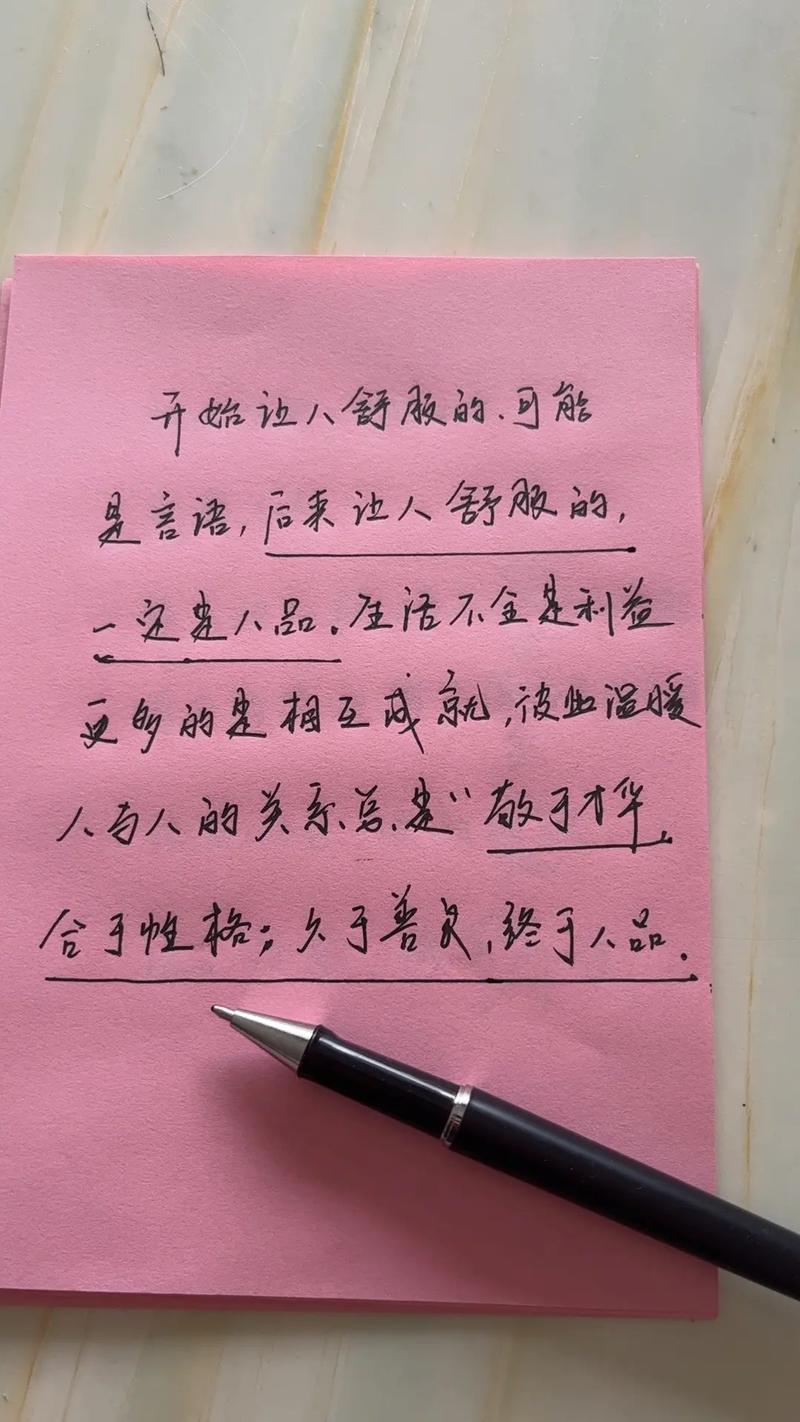 开始让人舒服的、可能
是言语,后来让人舒服的,
一定是人品.生活不全是利益
更多的是相互成就,彼此温暖
人与人的关系总是“敬于才华,
合于性格;久于善良,终于人品.